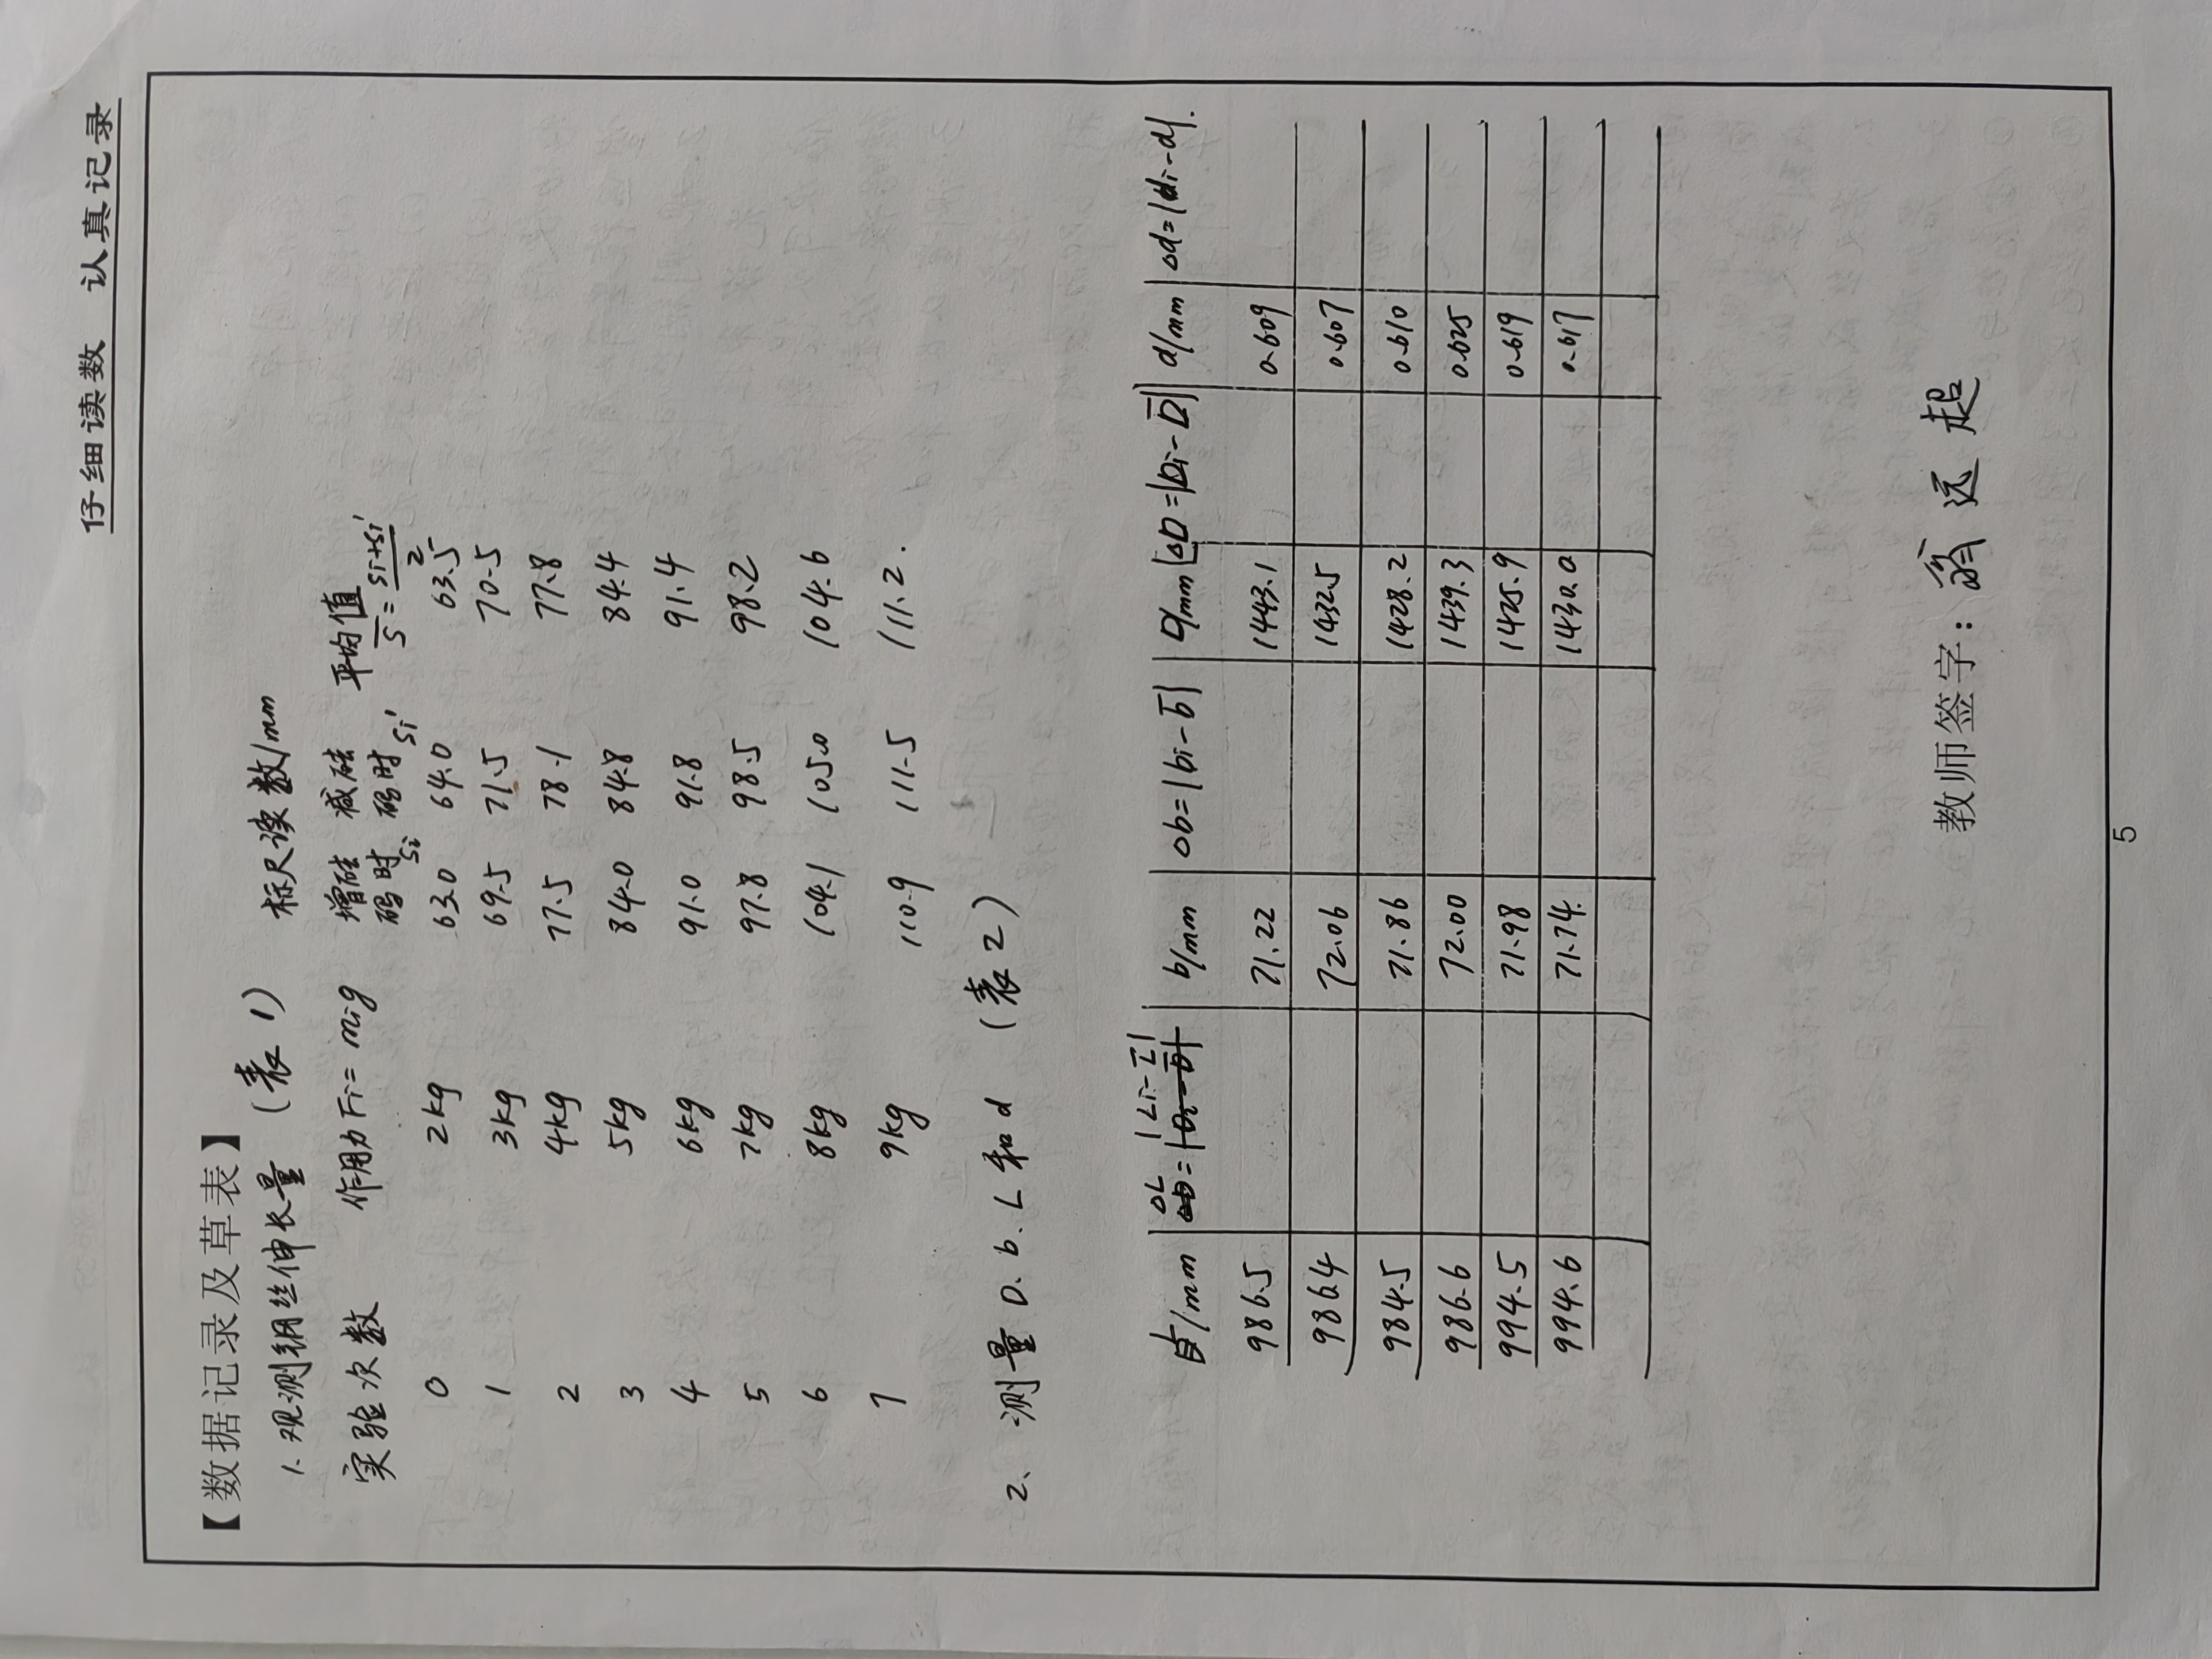 仔细读数 认真记录
【数据记录及草表】
1. 观测钢丝伸长量 (表1) 标尺读数/mm
实验次数 作用力Fi=mig 增砝码时Si 减砝码时Si' 平均值 S̅=(Si+Si')/2
0 2kg 63.0 64.0 63.5
1 3kg 69.5 71.5 70.5
2 4kg 77.5 78.1 77.8
3 5kg 84.0 84.8 84.4
4 6kg 91.0 91.8 91.4
5 7kg 97.8 98.5 98.2
6 8kg 104.1 105.0 104.6
7 9kg 110.9 111.5 111.2.
2、测量D、b、L和d (表2)
L/mm △L=|Li-L̅| b/mm △b=|bi-b̅| D/mm △D=|Di-D̅| d/mm △d=|di-d|.
986.5 71.22 1443.1 0.609
986.4 72.06 1432.5 0.607
984.5 71.86 1428.2 0.610
986.6 72.00 1439.3 0.625
994.5 71.98 1425.9 0.619
994.6 71.74. 1430.0 0.617
教师签字：翁远超
5